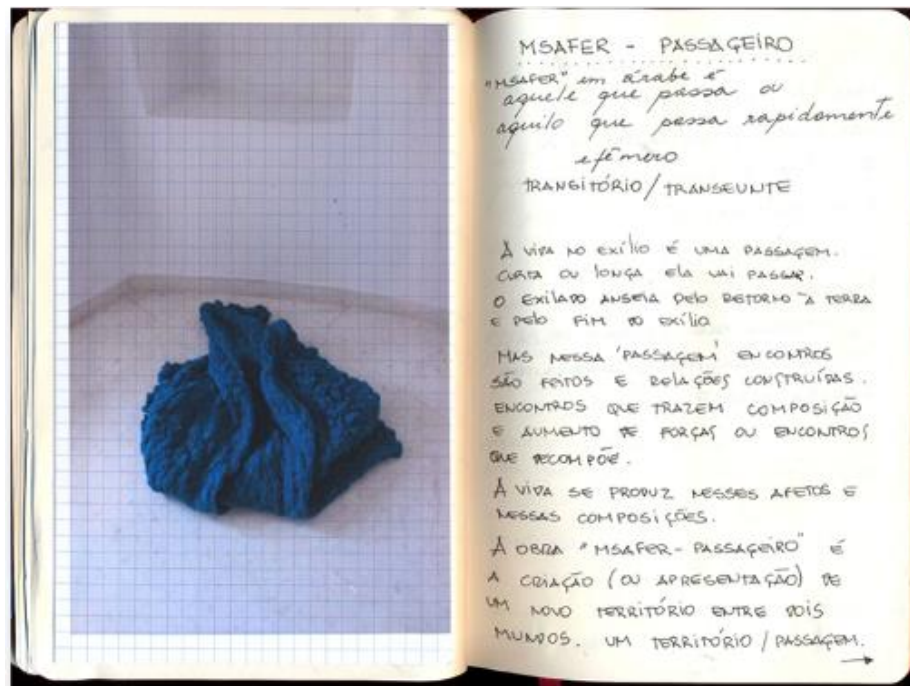 MSAFER - PASSAGEIRO
"MSAFER" em árabe é
aquele que passa ou
aquilo que passa rapidamente
efêmero
TRANSITÓRIO / TRANSEUNTE
A VIDA NO EXÍLIO É UMA PASSAGEM.
CURTA OU LONGA ELA VAI PASSAR.
O EXILADO ANSEIA PELO RETORNO À TERRA
E PELO FIM DO EXÍLIO
MAS NESSA 'PASSAGEM' ENCONTROS
SÃO FEITOS E RELAÇÕES CONSTRUÍDAS.
ENCONTROS QUE TRAZEM COMPOSIÇÃO
E AUMENTO DE FORÇAS OU ENCONTROS
QUE DECOMPÕE.
A VIDA SE PRODUZ NESSES AFETOS E
NESSAS COMPOSIÇÕES.
A OBRA "MSAFER - PASSAGEIRO" É
A CRIAÇÃO (OU APRESENTAÇÃO) DE
UM NOVO TERRITÓRIO ENTRE DOIS
MUNDOS. UM TERRITÓRIO / PASSAGEM.